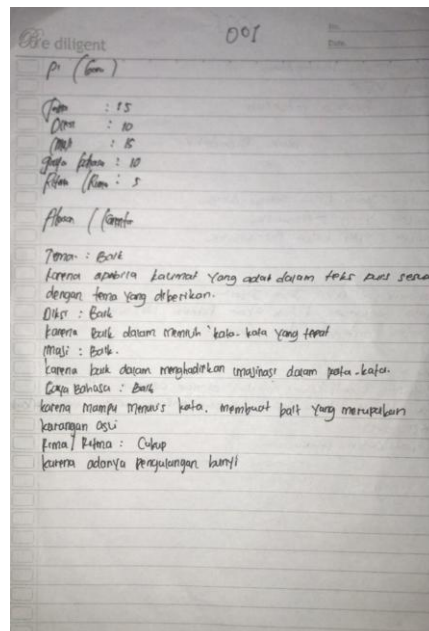 001
re diligent
No.
Date.
P1 (Guru)
Tema : 15
Diksi : 10
Imaji : 15
gaya bahasa : 10
Ritma / Rima : 5
Alasan / Komentar
Tema : Baik
karena apabila kalimat yang adat dalam teks puisi sesua
dengan tema yang diberikan.
Diksi : Baik
karena Baik dalam memilih kata-kata yang tepat
Imaji : Baik.
karena baik dalam menghadirkan imajinasi dalam kata-kata.
Gaya Bahasa : Baik
karena mampu menulis kata, membuat bait yang merupakan
karangan asli
Rima / Ritma : Cukup
karena adanya pengulangan bunyi